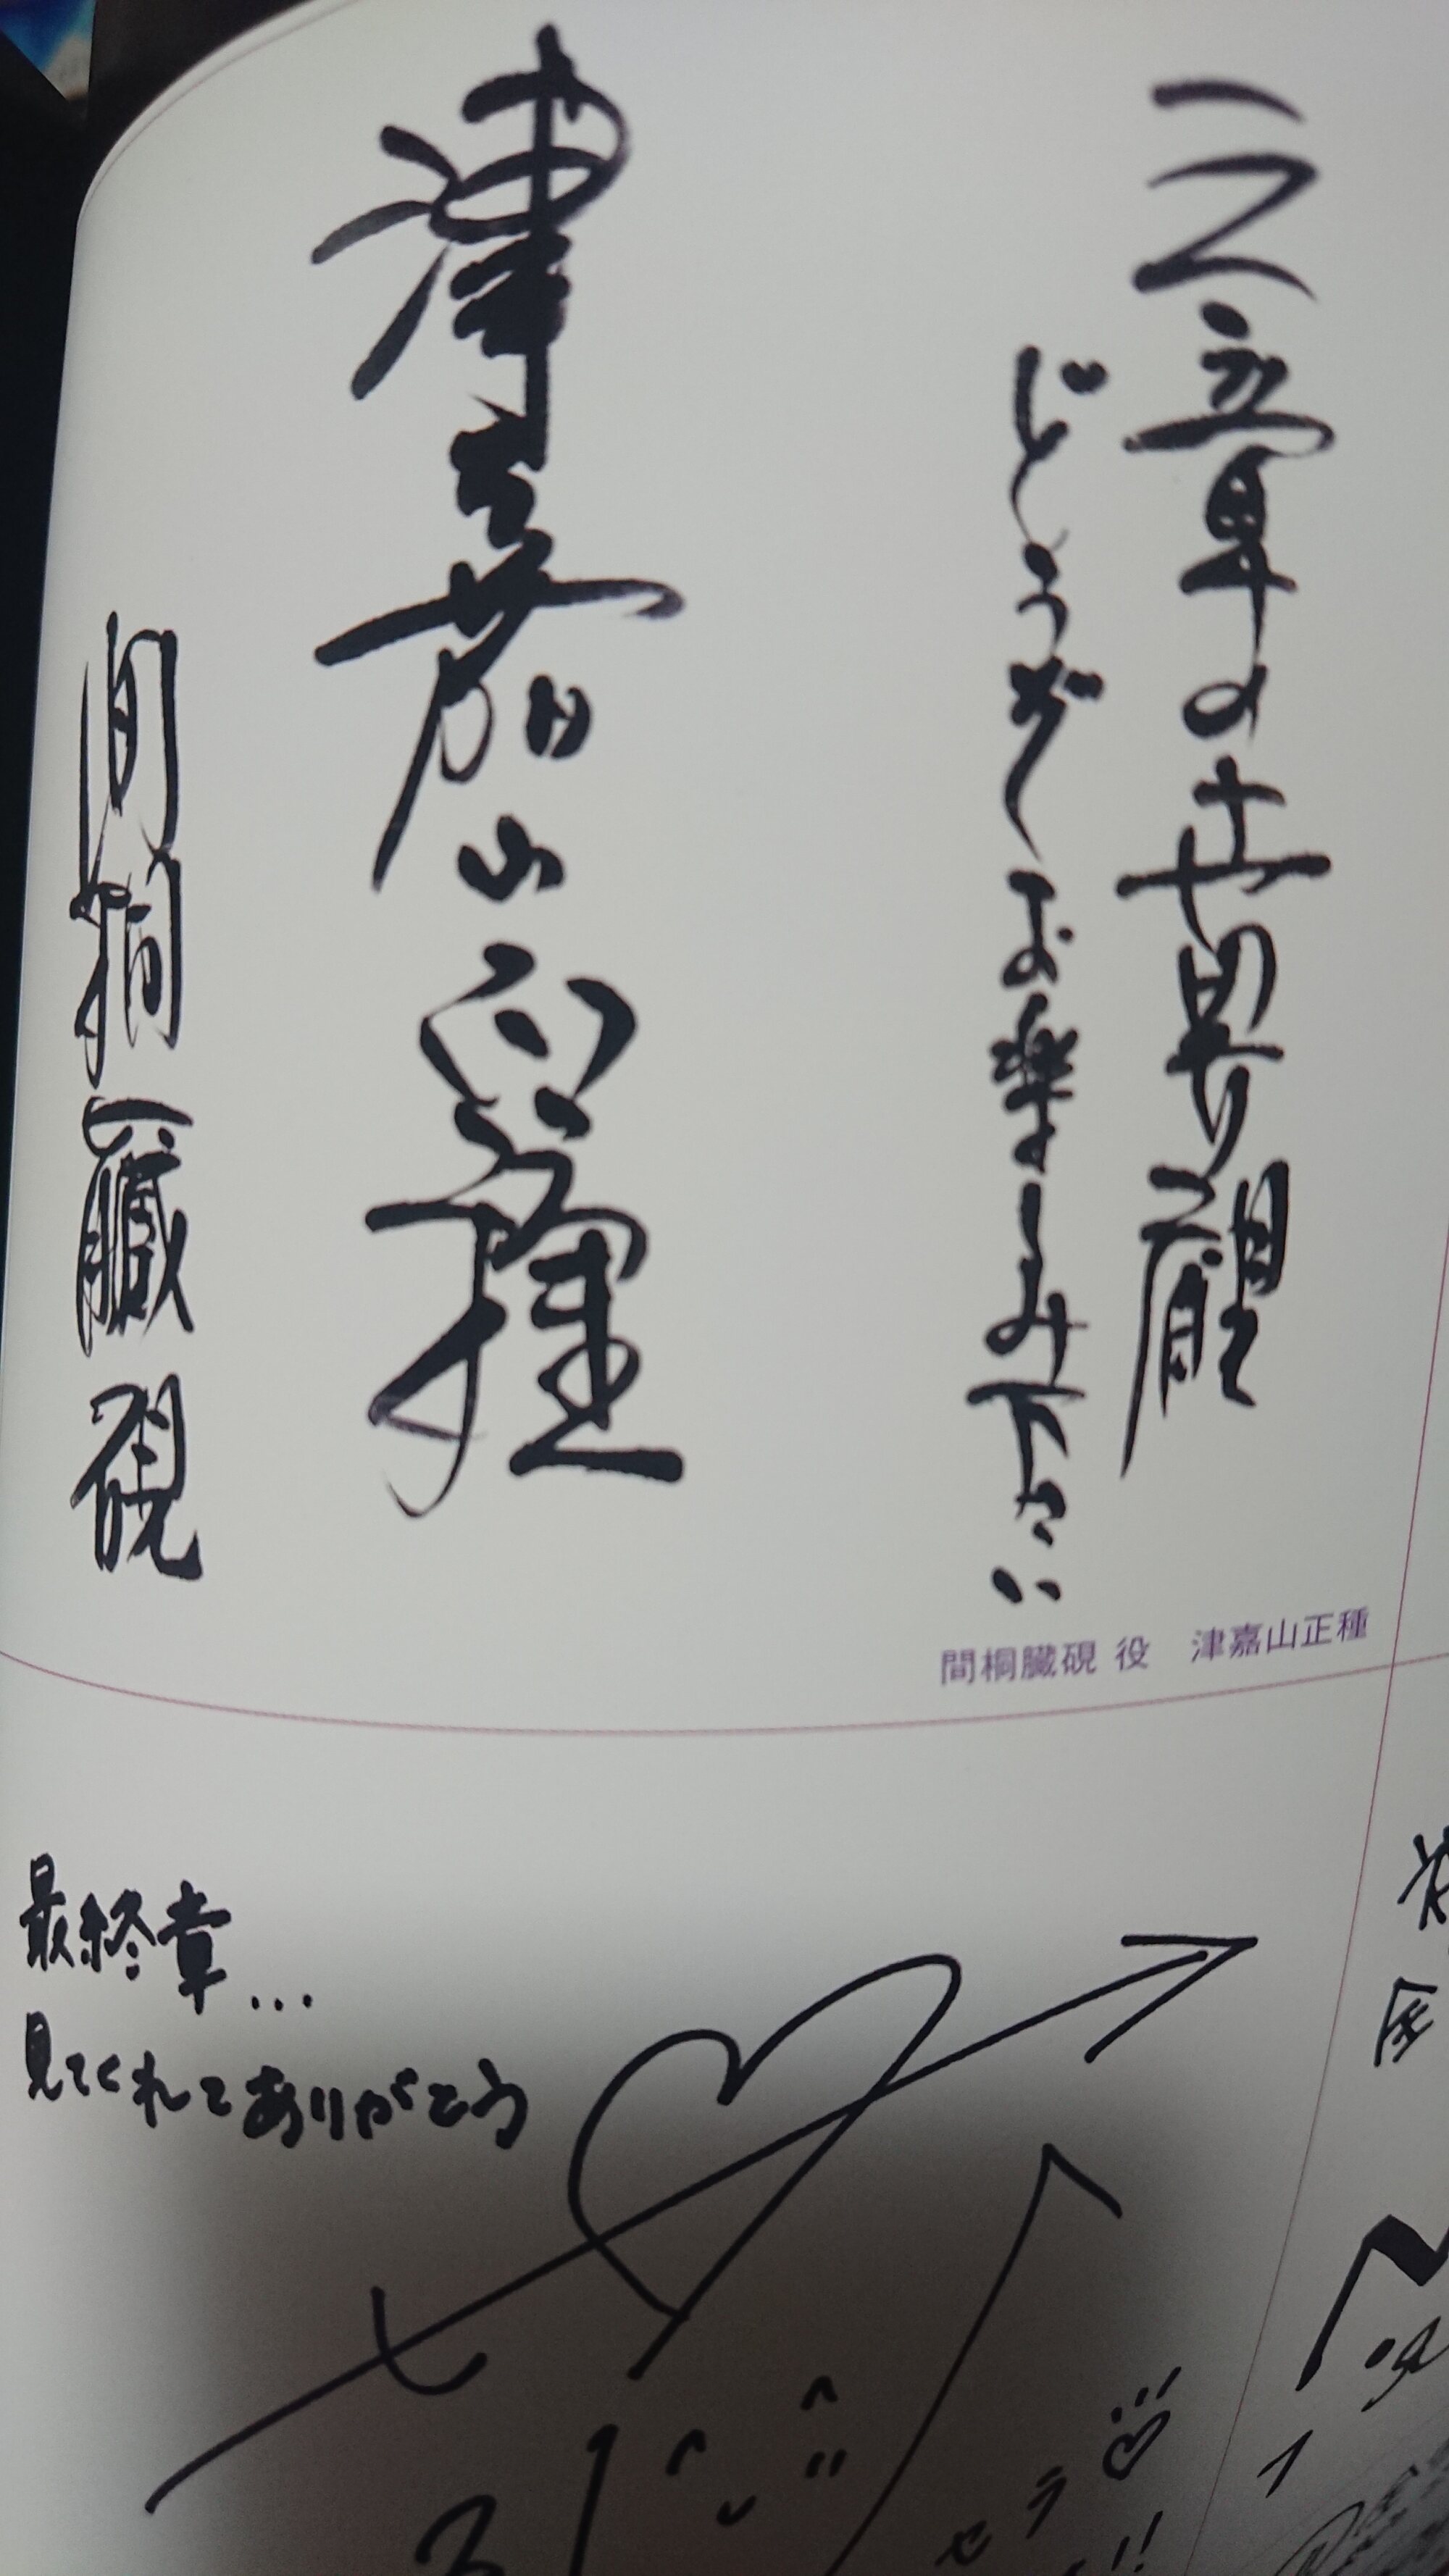 三章の世界観
どうぞお楽しみ下さい
津嘉山正種
間桐臓硯
間桐臓硯 役 津嘉山正種
最終章...
見てくれてありがとう